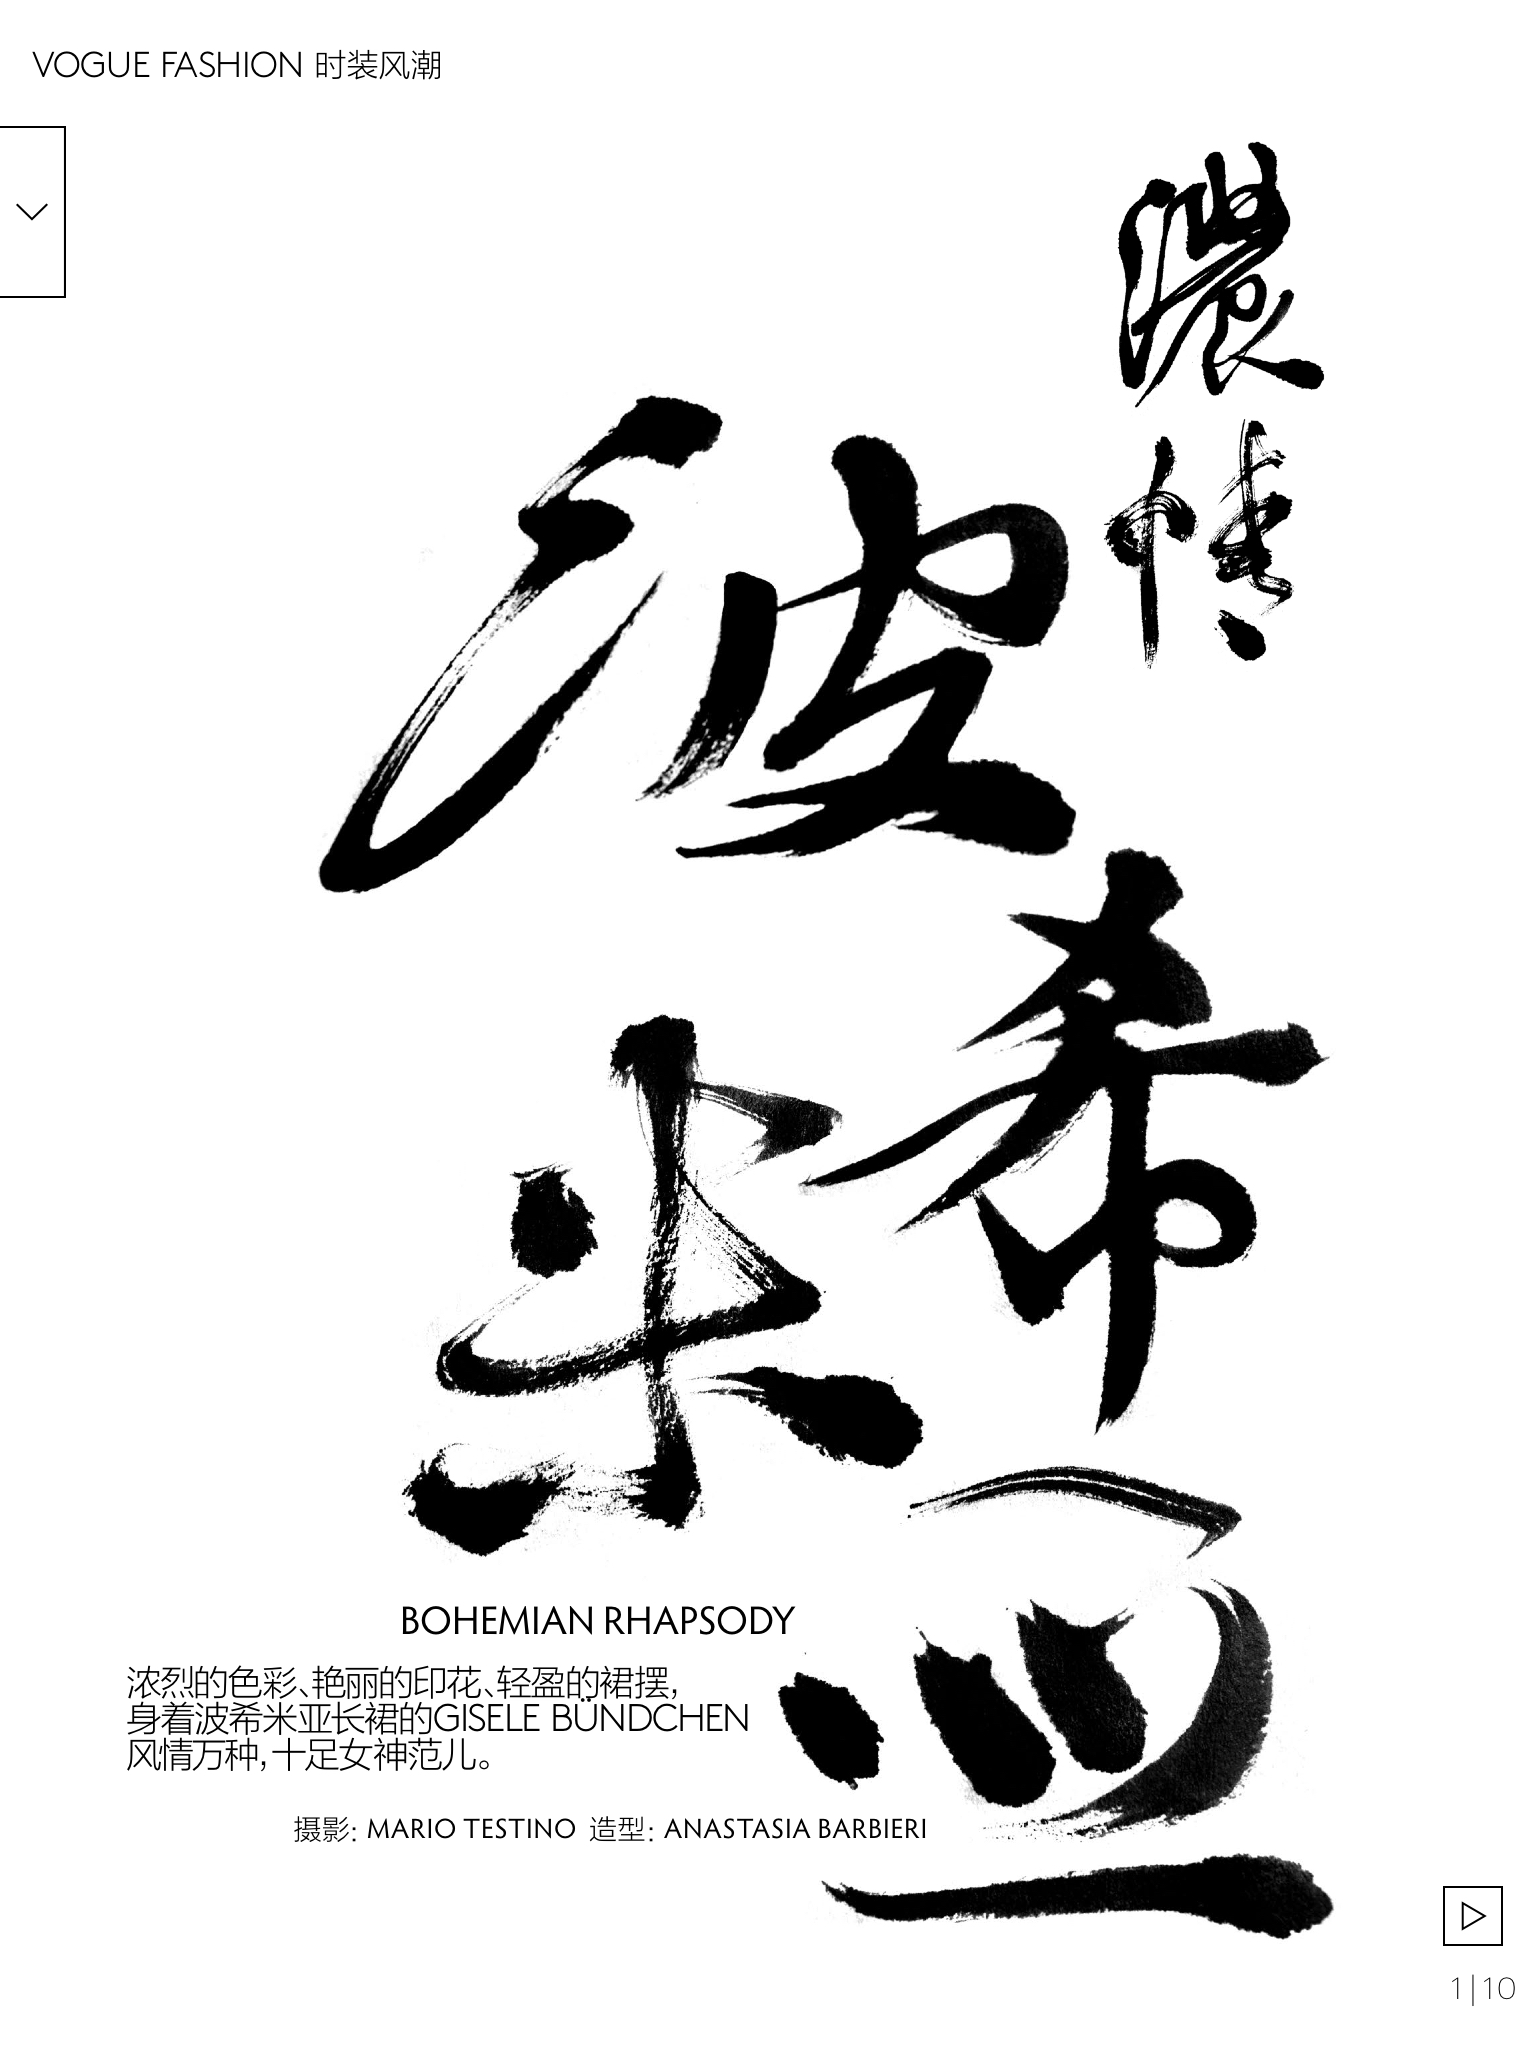 VOGUE FASHION 时装风潮
濃情
波希米亚
BOHEMIAN RHAPSODY
浓烈的色彩、艳丽的印花、轻盈的裙摆，
身着波希米亚长裙的GISELE BÜNDCHEN
风情万种，十足女神范儿。
摄影：MARIO TESTINO 造型：ANASTASIA BARBIERI
1|10